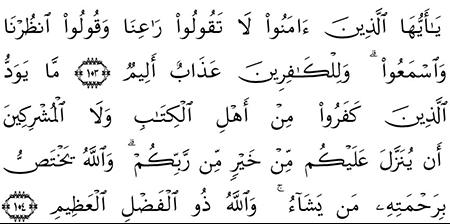 يَـٰٓأَيُّهَا ٱلَّذِينَ ءَامَنُوا۟ لَا تَقُولُوا۟ رَٰعِنَا وَقُولُوا۟ ٱنظُرْنَا
وَٱسْمَعُوا۟ ۗ وَلِلْكَـٰفِرِينَ عَذَابٌ أَلِيمٌ ۝١٠٣ مَّا يَوَدُّ
ٱلَّذِينَ كَفَرُوا۟ مِنْ أَهْلِ ٱلْكِتَـٰبِ وَلَا ٱلْمُشْرِكِينَ
أَن يُنَزَّلَ عَلَيْكُم مِّنْ خَيْرٍ مِّن رَّبِّكُمْ ۗ وَٱللَّهُ يَخْتَصُّ
بِرَحْمَتِهِۦ مَن يَشَآءُ ۚ وَٱللَّهُ ذُو ٱلْفَضْلِ ٱلْعَظِيمِ ۝١٠٤